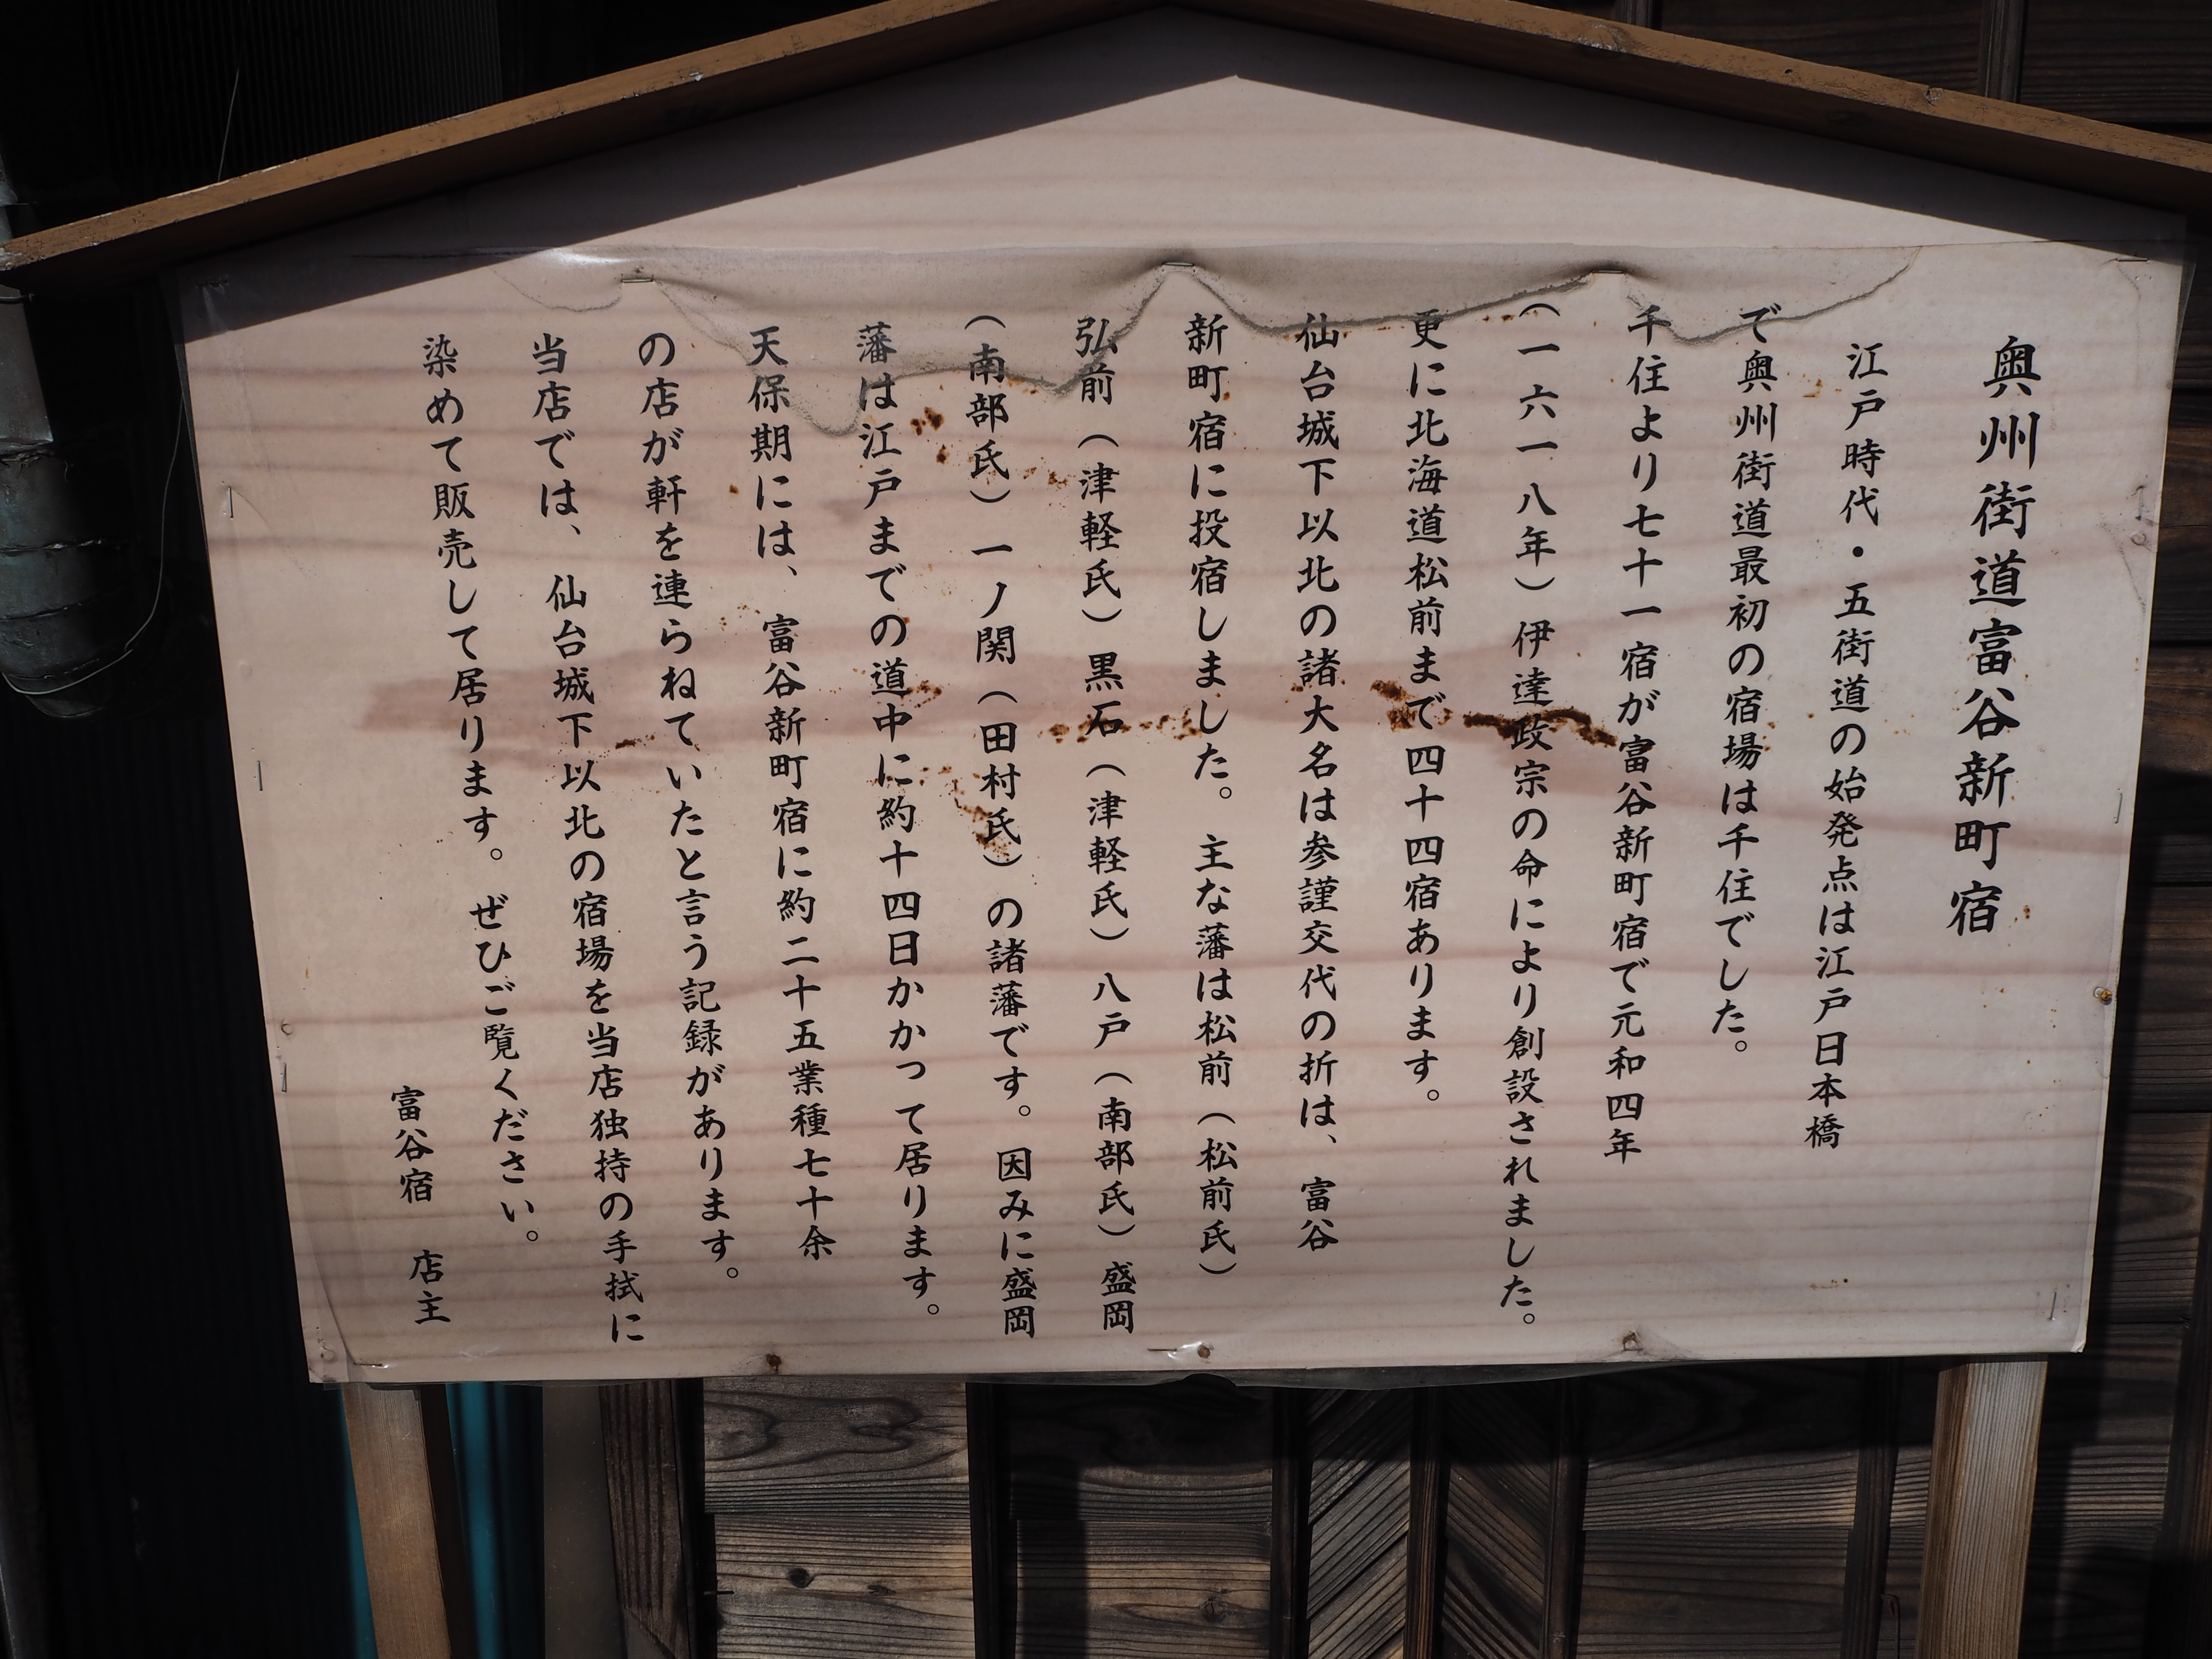 奥州街道富谷新町宿
江戸時代・五街道の始発点は江戸日本橋
で奥州街道最初の宿場は千住でした。
千住より七十一宿が富谷新町宿で元和四年
(一六一八年)伊達政宗の命により創設されました。
更に北海道松前まで四十四宿あります。
仙台城下以北の諸大名は参謹交代の折は、富谷
新町宿に投宿しました。主な藩は松前(松前氏)
弘前(津軽氏)黒石(津軽氏)八戸(南部氏)盛岡
(南部氏)一ノ関(田村氏)の諸藩です。因みに盛岡
藩は江戸までの道中に約十四日かかって居ります。
天保期には、富谷新町宿に約二十五業種七十余
の店が軒を連らねていたと言う記録があります。
当店では、仙台城下以北の宿場を当店独持の手拭に
染めて販売して居ります。ぜひご覧ください。
富谷宿 店主